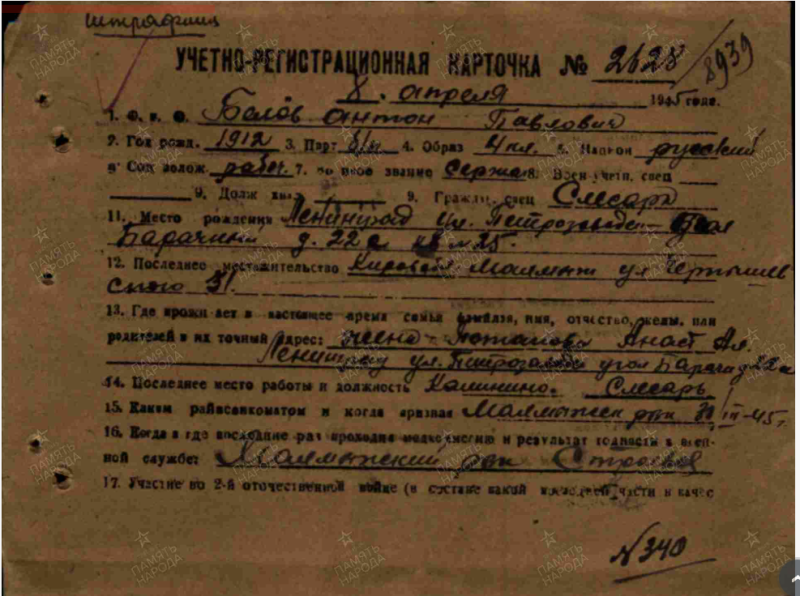 штрафник
УЧЕТНО-РЕГИСТРАЦИОННАЯ КАРТОЧКА № 2628/8939
8 апреля 1945 года.
1. Ф. и. о. Белов Антон Павлович
2. Год рожд. 1912 3. Парт б/п 4. Образ 4 кл. 5. Национ русский
6 Соц полож. рабоч. 7. Военное звание сержа 8. Воен. учетн. спец
9. Долж 9. Гражд. спец Слесарь
11. Место рождения Ленинград ул. Петрозаводс
д. 22а кв № 25.
12. Последнее местожительство Кировская Малмыж ул Чернышев
ского 31.
13. Где проживает в настоящее время семья фамилия, имя, отчество, жены, или
родителей и их точный адрес: жена Анаст Ал.
Ленинград ул. Петрозаводс угол 22а
14. Последнее место работы и должность Калинино. Слесарь
15. Каким райвоенкоматом и когда призван Малмыжск рвк III-45 г
16. Когда и где последние раз проходил медкомиссию и результат годности к воен-
ной службе: Малмыжский рвк Строевой
17. Участие во 2-й отечественной войне (в составе какой воинской части в качес
№ 340
ПАМЯТЬ НАРОДА